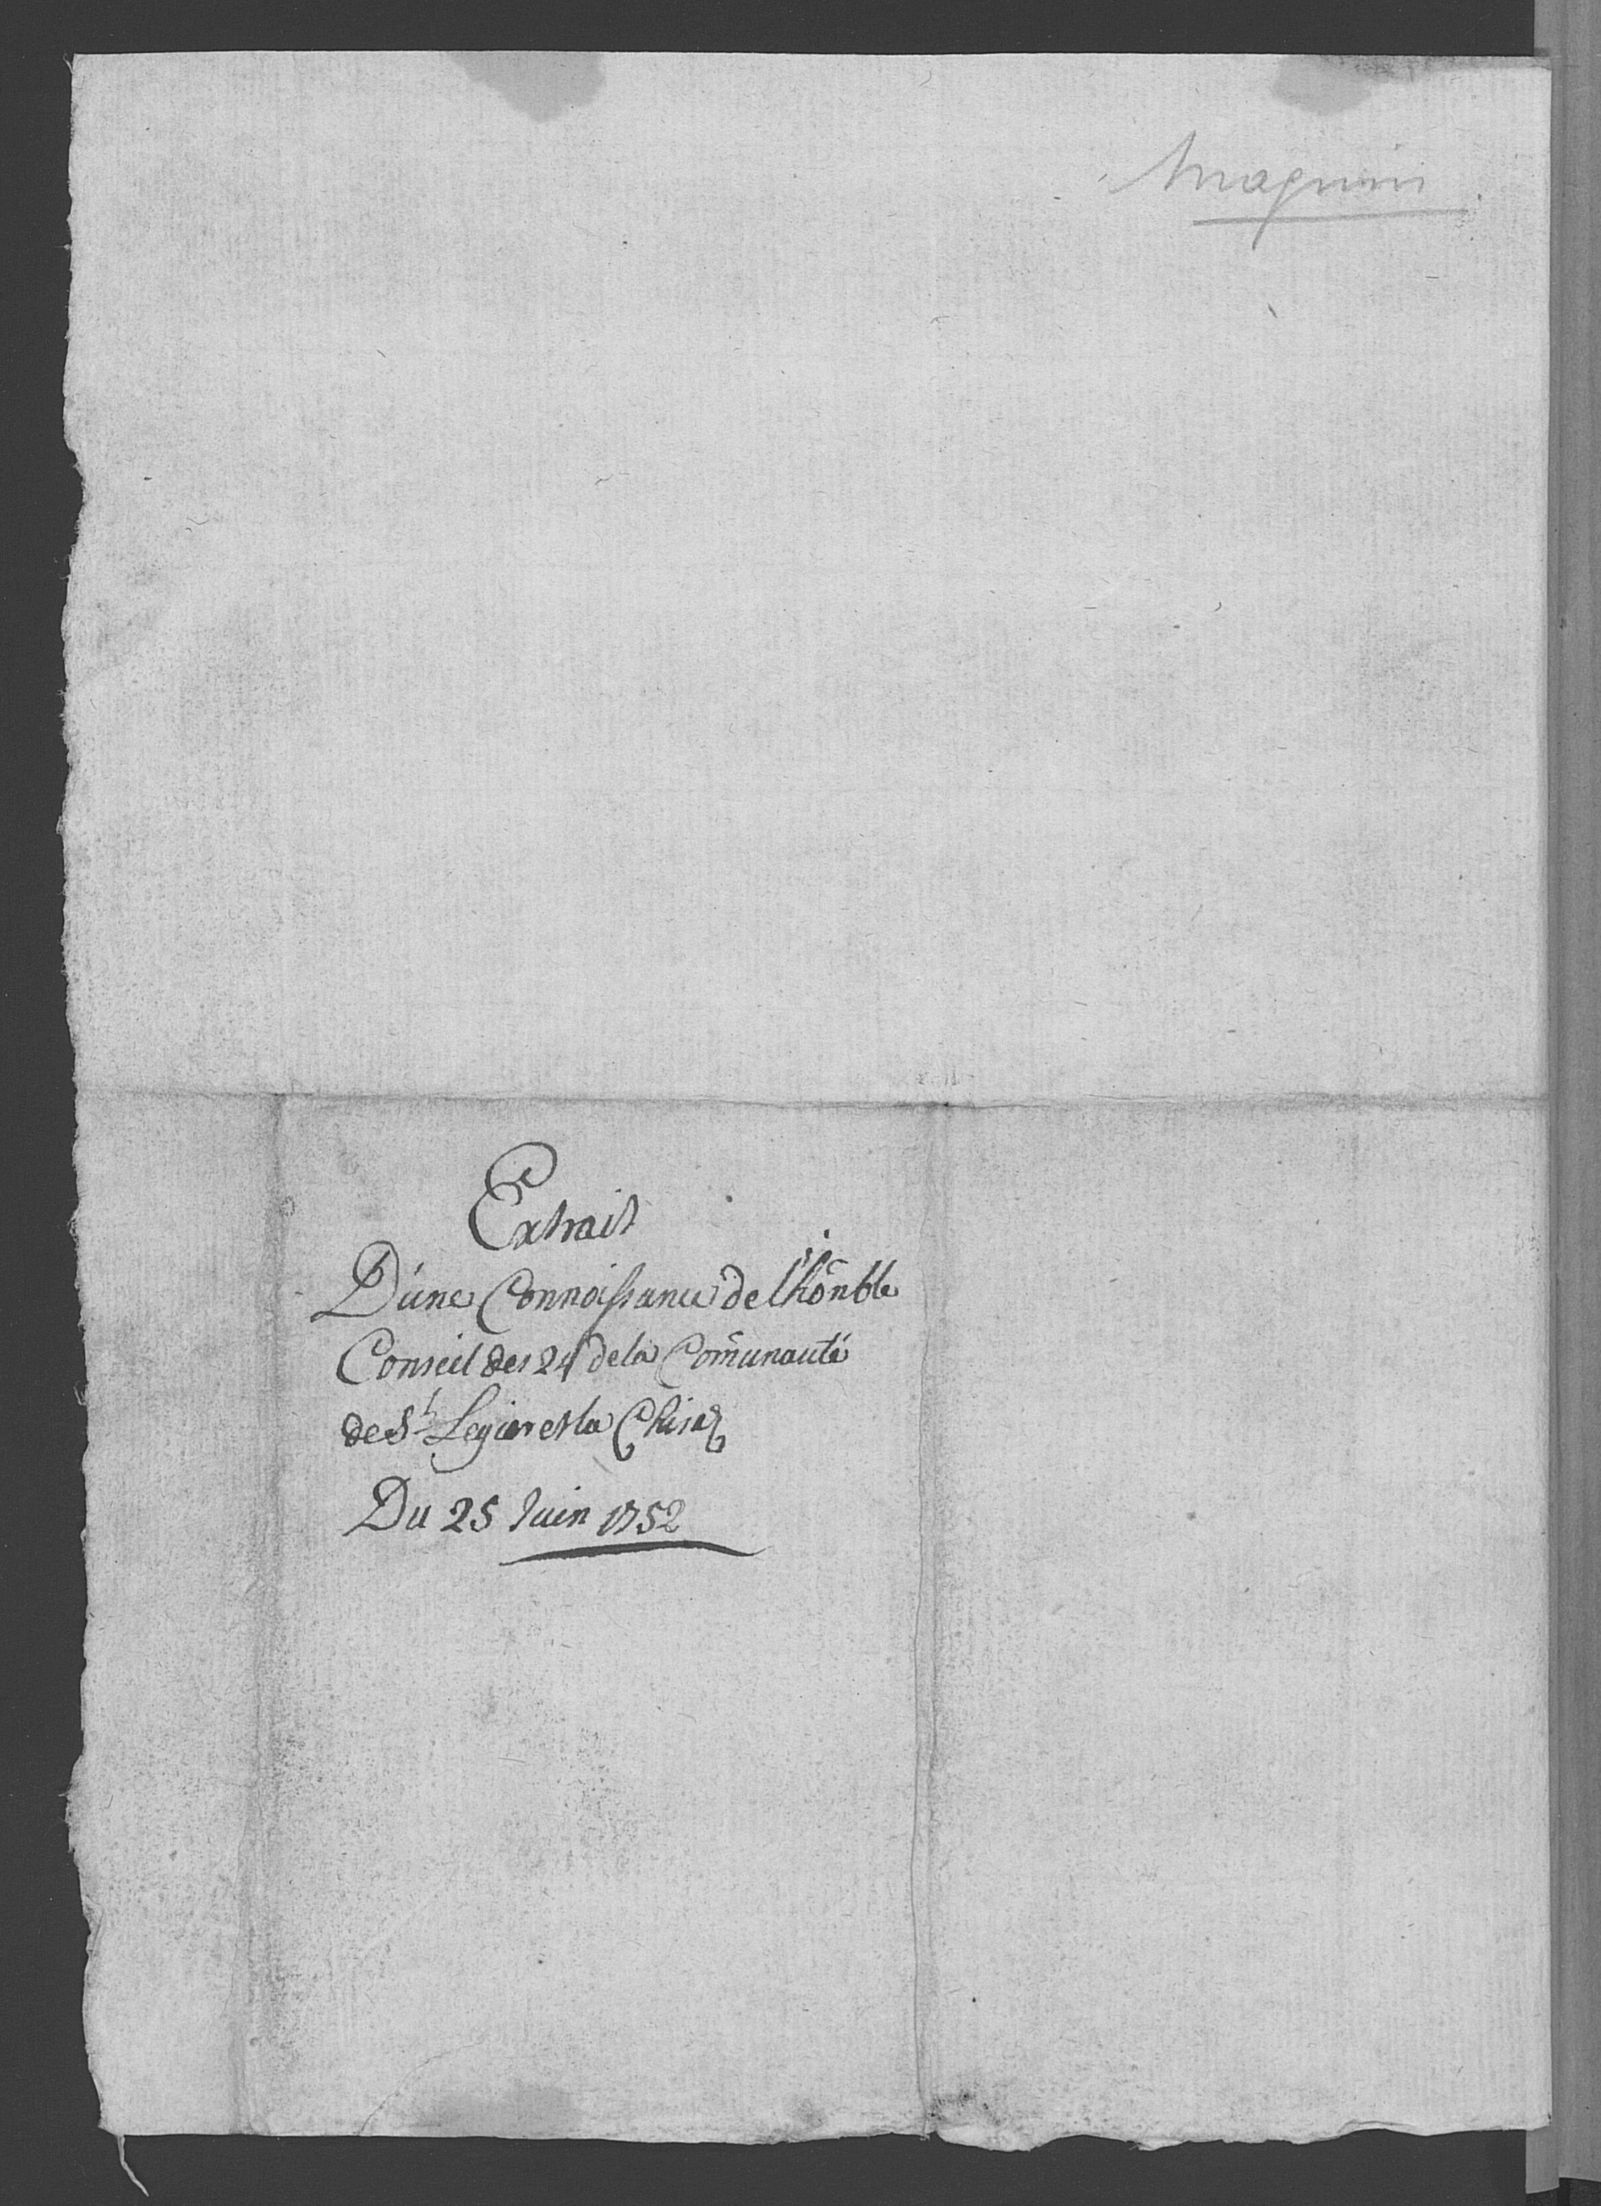 Magnin
Extrait
D'une Connoissance de l'honble
Conseil des 24 de la Comunauté
de St Legier et la Chisaz
Du 25 Juin 1752